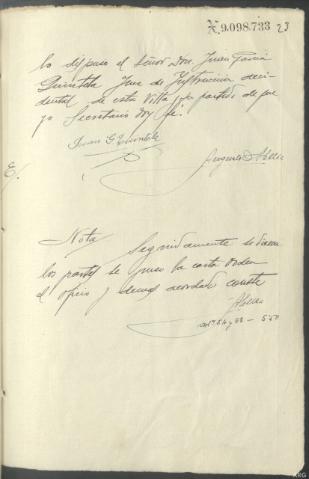 X 9.098.733 23
lo dispuso el Señor Don Juan Garcia
Quintela Juez de Instrucion acci-
dental de esta Villa y su partido de que
yo Secretario doy fé.
Juan G Quintela
Nota Seguidamente se dieron
los partes se puso la carta orden
el oficio y demas acordado conste
Abella
ARG